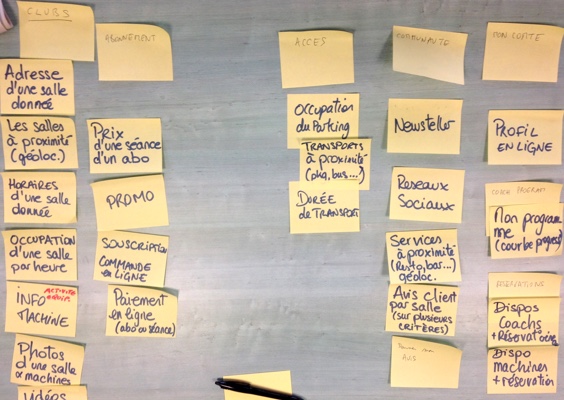 CLUBS
Adresse
d'une salle
donnée
Les salles
à proximité
(géoloc.)
HORAIRES
d'une salle
donnée
OCCUPATION
d'une salle
par heure
INFO
MACHINE
Photos
d'une salle
machines
vidéos
ABONNEMENT
Prix
d'une séance
d'un abo
PROMO
SOUSCRIPTION
COMMANDE
en LIGNE
Paiement
en ligne
(abo ou séance)
ACCES
Occupation
du Parking
TRANSPORTS
à proximité
(pkg, bus...?)
DURÉE
de TRANSPORT
COMMUNAUTE
Newsletter
Reseaux
Sociaux
Services
à proximité
(resto, bar...)
géoloc.
Avis client
par salle
(sur plusieurs
CRITÈRES)
AVIS
MON COMPTE
PROFIL
EN LIGNE
COACH PROGRAM
Mon program
me
Dispos
Coachs
+Réservations
Dispo
machines
+ réservation